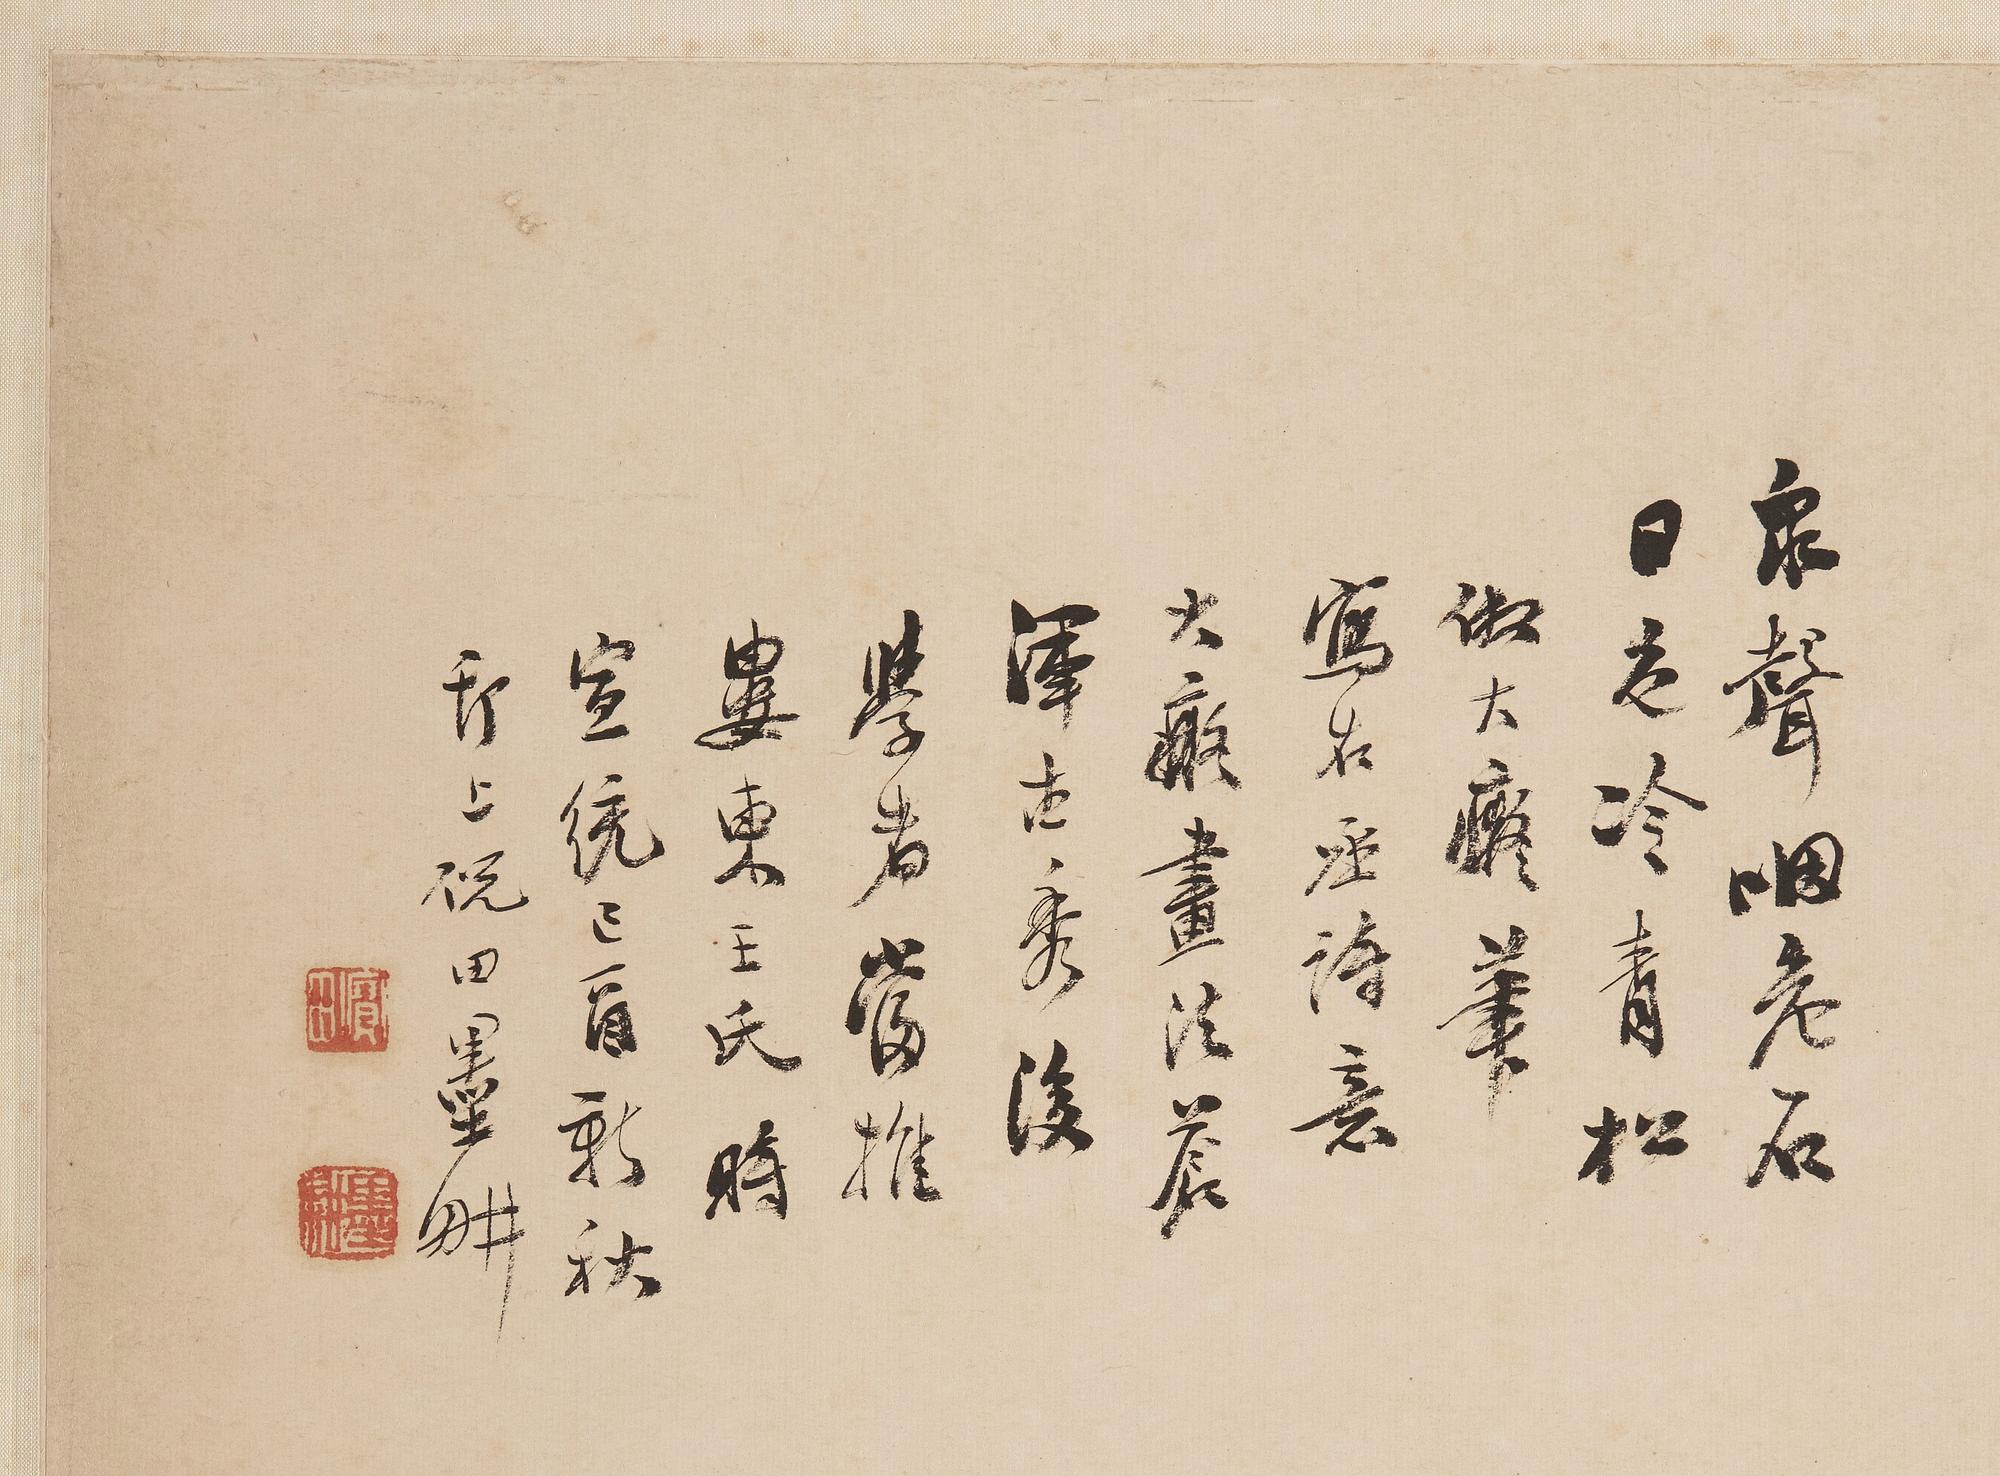 泉聲咽危石
日色冷青松
仿大癡筆
寫右丞詩意
大癡畫法蒼
渾古秀後
學者當推
婁東王氏時
宣統己酉新秋
邗上倪田墨畊
寶田
墨畊